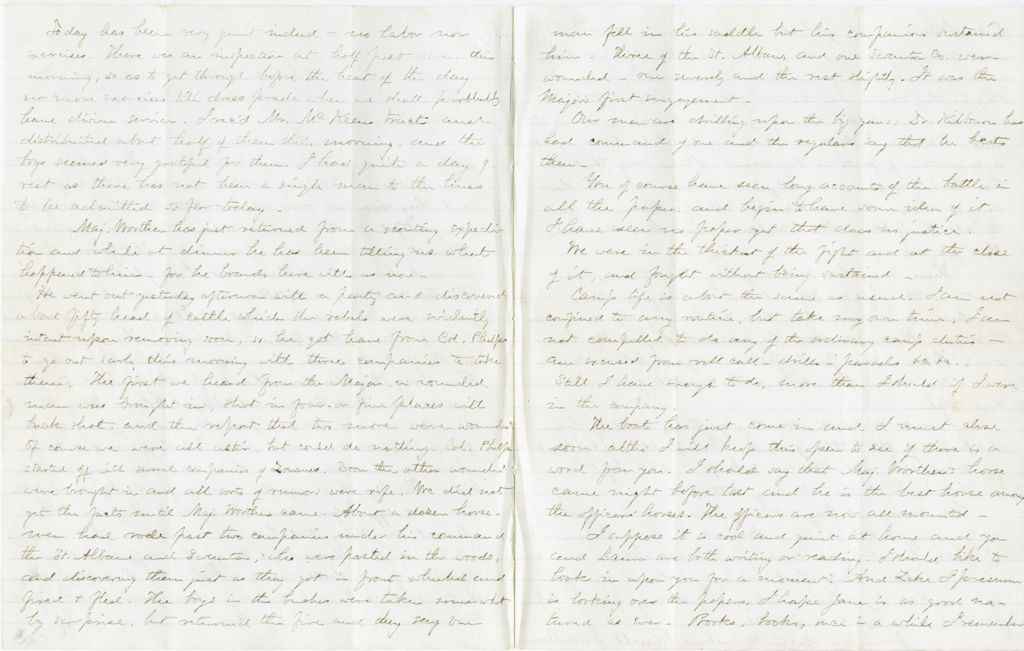 Today has been very quiet indeed - no labor nor
exercises. There was an inspection at half past seven this
morning, so as to get through before the heat of the day
no more exercises till dress parade when we shall probably
have divine service. I rec'd Mr. McKeens tracts and
distributed about half of them this morning, and the
boys seemed very grateful for them. I had quite a day of
rest as there has not been a single man to the lines
to be admitted so far today.
Maj. Worthen has just returned from a scouting expedi-
tion and while at dinner he has been telling us what
happened to him - for he boards here with us now.
He went out yesterday afternoon with a party and discovered
about fifty head of cattle which the rebels were evidently
intent upon removing soon, so he got leave from Col. Phelps
to go out early this morning with three companies to take
them. The first we heard from the Major, a wounded
man was brought in, shot in four or five places with
buck shot, and the report that two more were wounded
Of course we were all astir, but could do nothing. Col. Phelps
started off with several companies of Zouaves. Soon the other wounded
were brought in and all sorts of rumors were rife. We did not
get the facts until Maj. Worthen came. About a dozen horse-
men had rode past two companies under his command
the St. Albans and Swanton, who were posted in the woods,
and discovering them just as they got in front wheeled and
fired & fled. The boys in the bushes were taken some what
by surprise, but returned the fire and they say one
man fell in his saddle but his companions sustained
him. Three of the St. Albans and one Swanton Co. were
wounded - one severely and the rest slightly. It was the
Major's first engagement.
Our men are drilling upon the big guns. Dr. Kilbourn has
had command of one and the regulars say that he beats
them.
You of course have seen long accounts of the battle in
all the papers and begin to have some idea of it.
I have seen no paper yet that does us justice.
We were in the thickest of the fight and at the close
of it, and fought without being sustained.
Camp life is about the same as usual. I am not
confined to any routine, but take my own time. I am
not compelled to do any of the ordinary camp duties -
am excused from roll call - drills - parades &c. &c.
Still I have enough to do, more than I should if I were
in the company.
The boat has just come in and I must close
soon altho I will keep this open to see if there is a
word from you. I should say that Maj. Worthen's horse
came night before last and he is the best horse among
the officers' horses. The officers are now all mounted -
I suppose it is cool and quiet at home and you
and are both writing or reading. I should like to
look in upon you for a moment. And Zeke I presume
is looking over the papers. I hope Jane is as good na-
tured as ever. Books, books, once in a while I remember